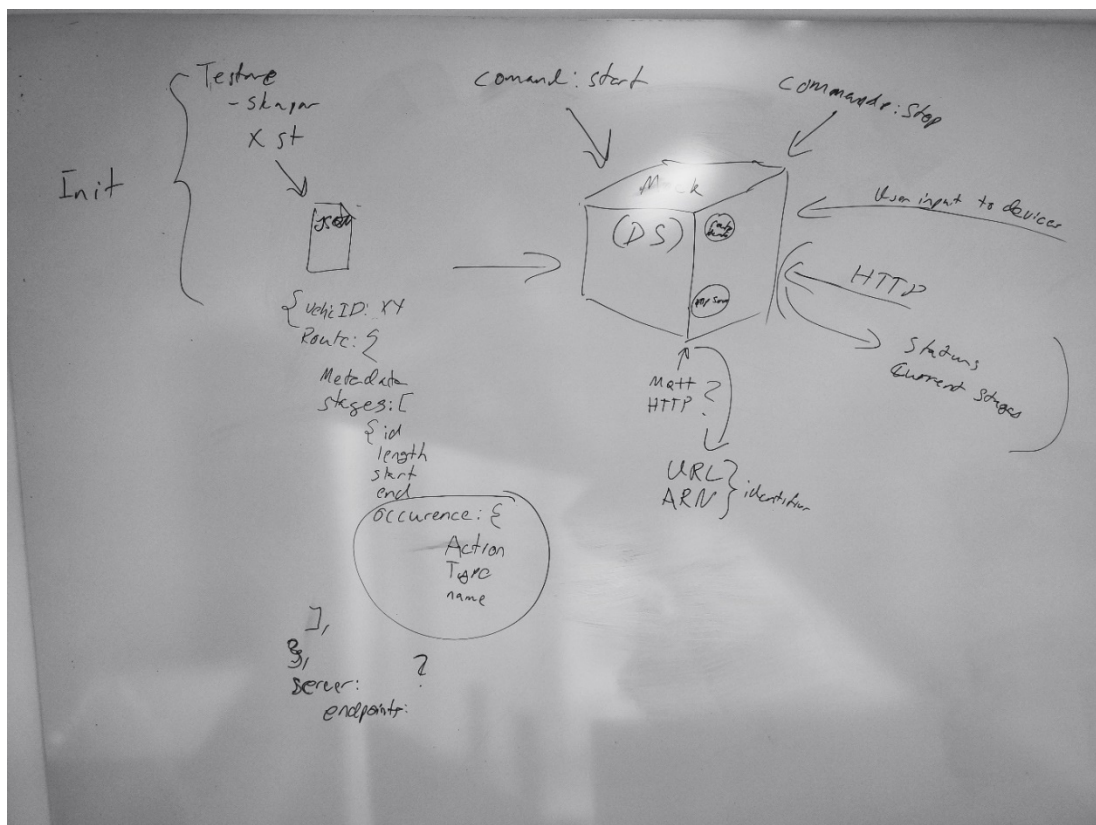 Init
Testare
- skapar
X st
JSON
{ VehicID: XY
Route: {
Metadata
stages: [
{ id
length
start
end
occurence: {
Action
Type
name
],
},
server:
endpoints:
?
comand: start
Commande: Stop
(DS)
User input to devices
HTTP
Status
Current Stages
Matt
HTTP
?
URL
ARN
}